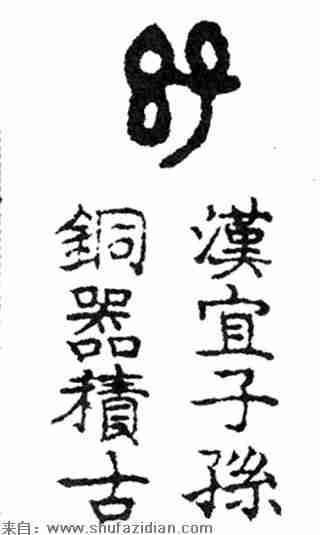 漢宜子孫
銅器積古
来自：www.shufazidian.com